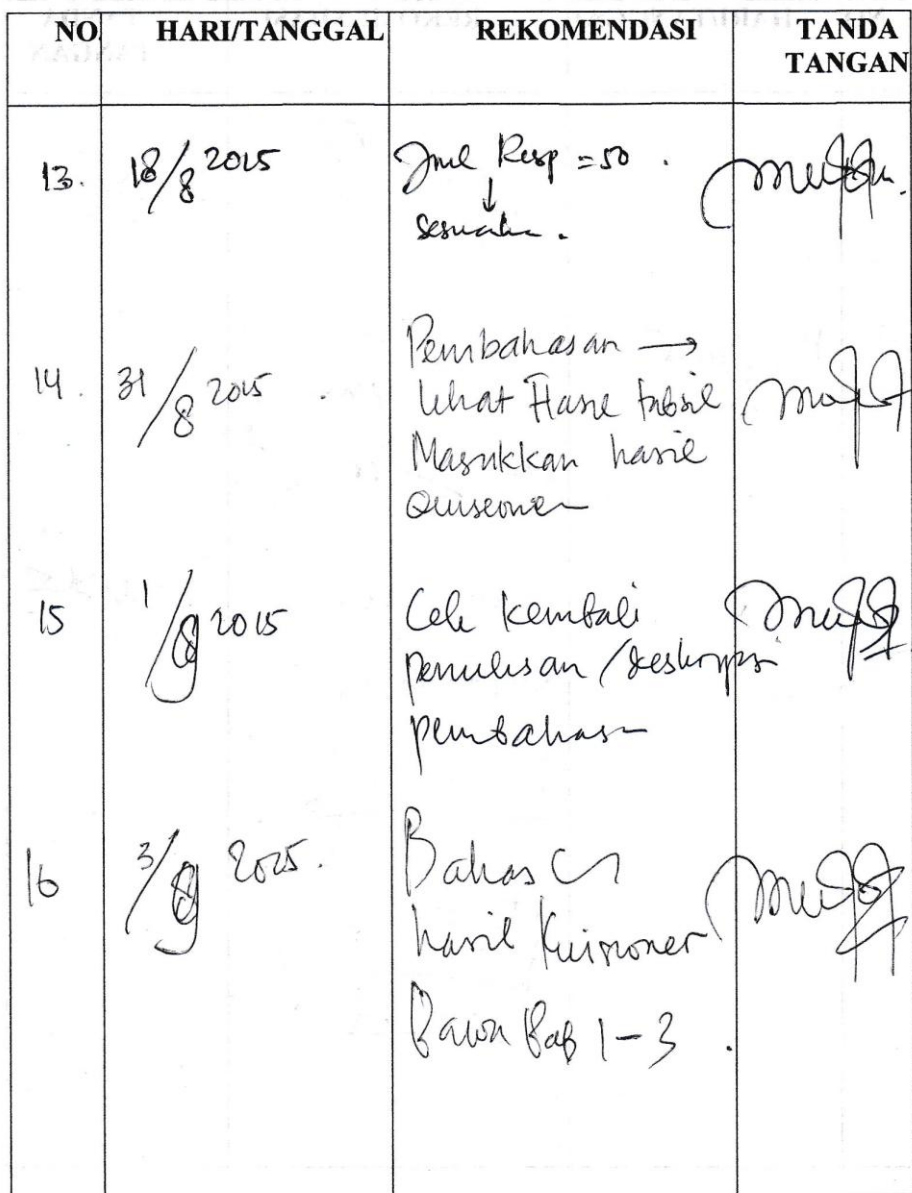 NO. HARI/TANGGAL REKOMENDASI TANDA TANGAN
13. 18/8 2015 Jml Resp = 50 .
↓
sesuaikan .
14 . 31/8 2015 . Pembahasan →
lihat Hasil
Masukkan hasil
Quiseoner
15 1/9 2015 Cek kembali
penulisan / deskripsi
pembahasan
16 3/9 2015. Bahas
hasil Kuisioner
Bawa Bab 1-3 .